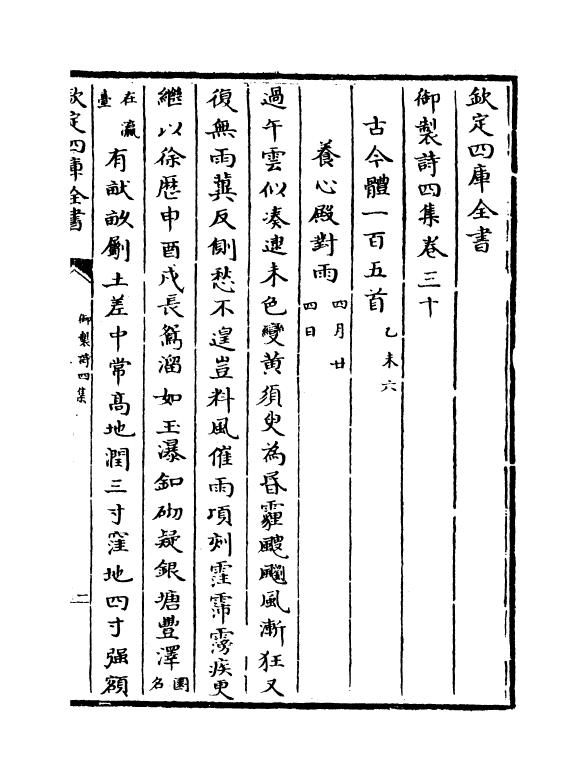 欽定四庫全書
御製詩四集卷三十
古今體一百五首乙未六
養心殿對雨四月廿四日
過午雲似凑逮未色變黄須臾為昏霾颼飀風漸狂又
復無雨冀反側愁不遑豈料風催雨項刻霔霈霶疾更
繼以徐歴申酉戌長簷溜如玉瀑釦砌疑銀塘豐澤園名
在瀛臺有試畝劚土差中常高地潤三寸窪地四寸强額
欽定四庫全書
御製詩四集
二